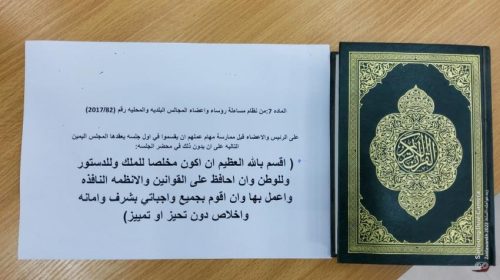 الماده 7:من نظام مساءلة روساء واعضاء المجالس البلديه والمحليه رقم (2017/82)
على الرئيس والاعضاء قبل ممارسة مهام عملهم ان يقسموا في اول جلسه يعقدها المجلس اليمين
التاليه على ان يدون ذلك في محضر الجلسه:
( اقسم بالله العظيم ان اكون مخلصا للملك وللدستور
وللوطن وان احافظ على القوانين والانظمه النافذه
واعمل بها وان اقوم بجميع واجباتي بشرف وامانه
واخلاص دون تحيز او تمييز)
القرآن الكريم